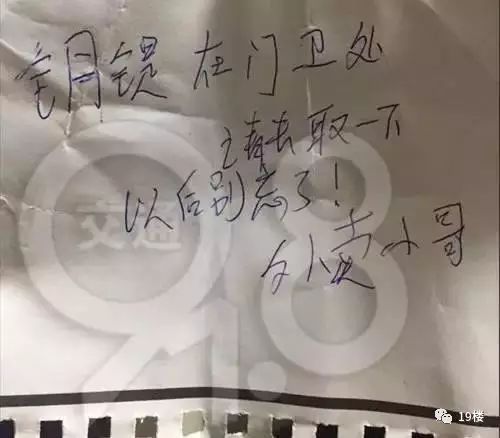 钥匙在门卫处
请去取一下
以后别忘了！
外卖小哥
交通
91.8
19楼